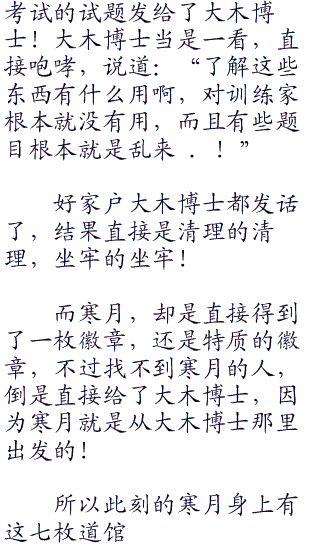 考试的试题发给了大木博
士！大木博士当是一看，直
接咆哮，说道：“了解这些
东西有什么用啊，对训练家
根本就没有用，而且有些题
目根本就是乱来 ．！”
好家户大木博士都发话
了，结果直接是清理的清
理，坐牢的坐牢！
而寒月，却是直接得到
了一枚徽章，还是特质的徽
章，不过找不到寒月的人，
倒是直接给了大木博士，因
为寒月就是从大木博士那里
出发的！
所以此刻的寒月身上有
这七枚道馆